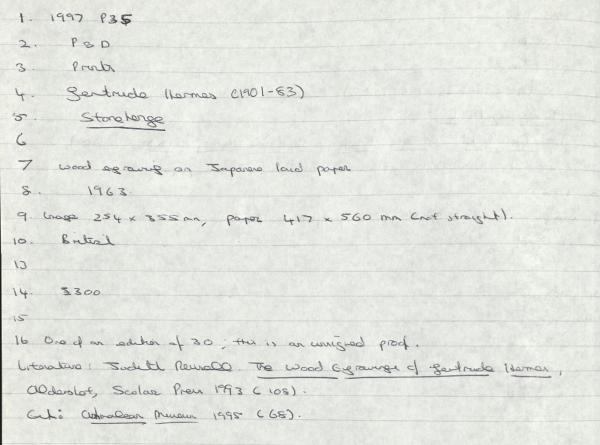 1. 1997 P35
2. P&D
3. Prints
4. Gertrude Hermes (1901-83)
5. Stonehenge
6
7 Wood engraving on Japanese laid paper
8. 1963.
9. Image 254 x 355 mm, paper 417 x 560 mm (not straight).
10. British
13
14. $300
15
16 One of an edition of 30; this is an unsigned proof.
Literature: Judith Russell. The Wood Engravings of Gertrude Hermes,
Aldershot, Scolar Press 1993 (105).
Exh: Ashmolean Museum 1995 (65).